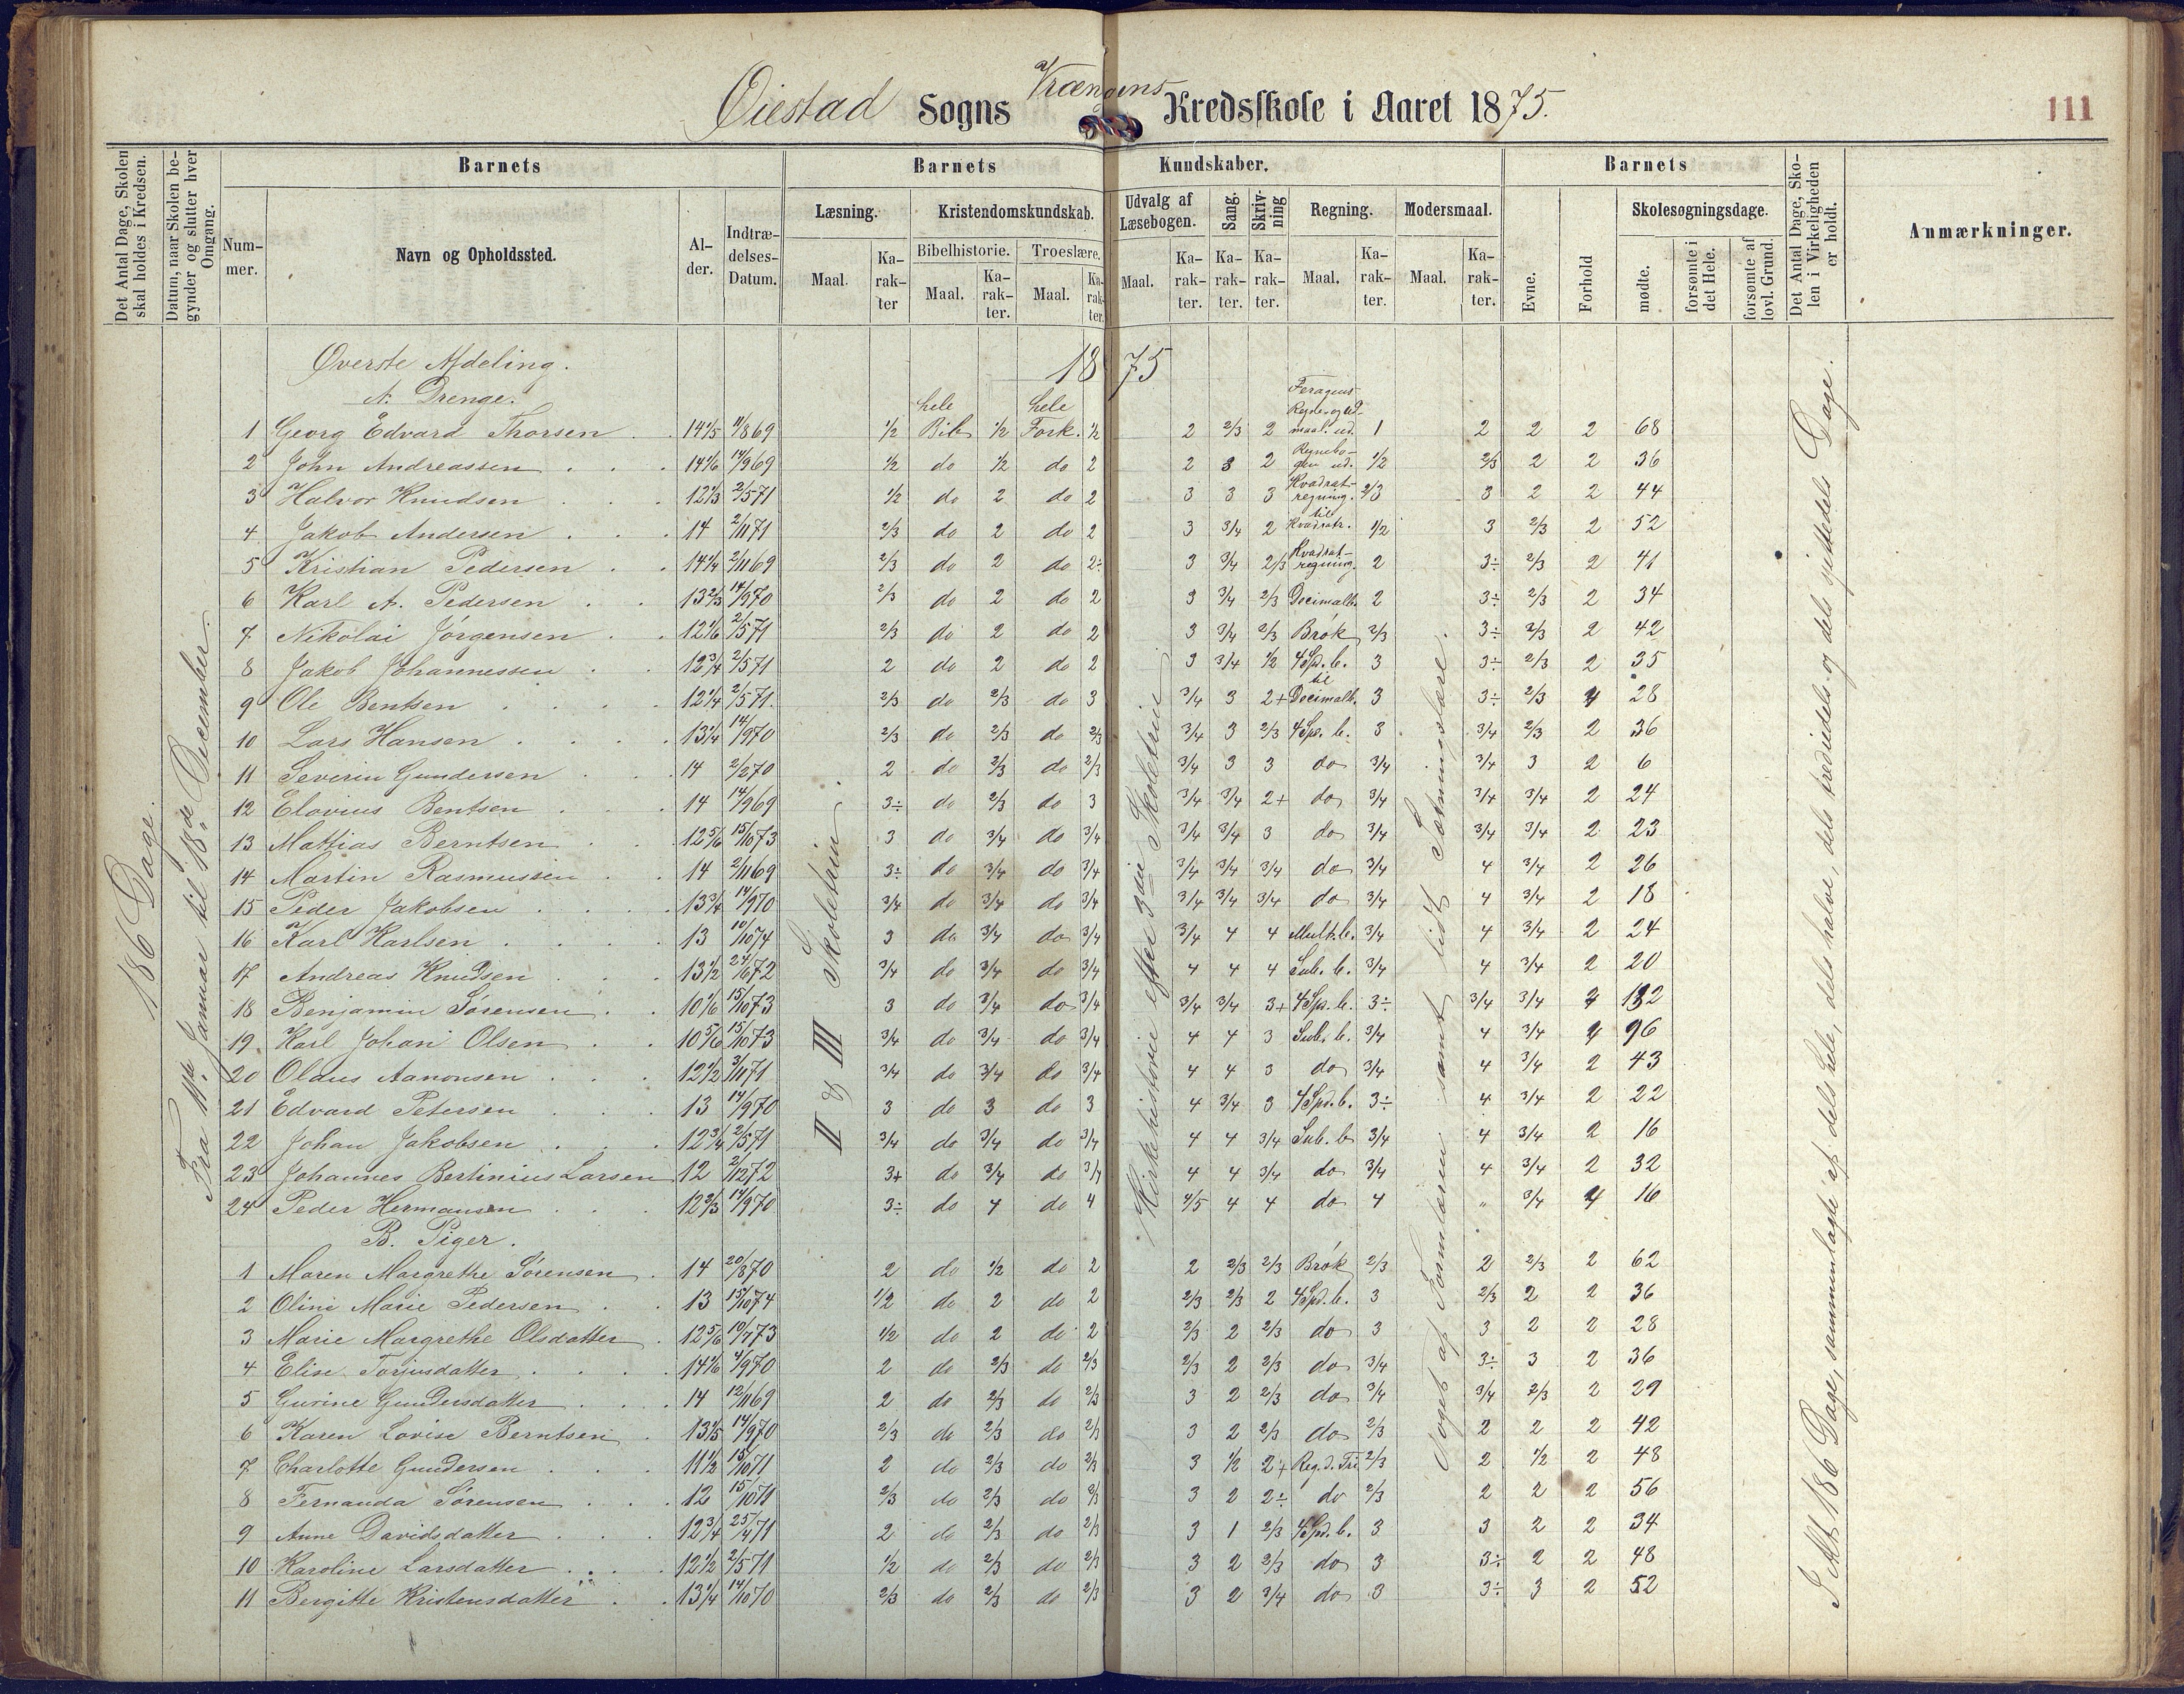 Øiestad Sogns Vrængens Kredsskole i Aaret 1875.
111
Det Antal Dage, Skolen skal holdes i Kredsen.
Datum, naar Skolen begynder og slutter hver Omgang.
Barnets
Nummer.
Navn og Opholdssted.
Alder.
Indtrædelses-Datum.
Barnets Kundskaber.
Læsning.
Maal.
Karakter
Kristendomskundskab.
Bibelhistorie.
Maal.
Karakter.
Troeslære.
Maal.
Karakter.
Udvalg af Læsebogen.
Maal.
Karakter.
Sang.
Karakter.
Skrivning
Karakter.
Regning.
Maal.
Karakter.
Modersmaal.
Maal.
Karakter.
Barnets
Evne.
Forhold
Skolesøgningsdage.
mødte.
forsømte i det Hele.
forsømte af lovl. Grund.
Det Antal Dage, Skolen i Virkeligheden er holdt.
Anmærkninger.
186 Dage.
Fra 11te Januar til 18de December.
II & III Skoletrin.
Kirkehistorie efter 3die Skoletrin
Noget af Formlæren samt lidt Sætningslære.
I Alt 186 Dage, sammenlagte af dels hele, dels halve, dels trediedels og dels sjettedels Dage.
Øverste Afdeling. 1875
A. Drenge.
1 Georg Edvard Thorsen 14 1/5 11/8 69 1/2 hele Bib. 1/2 hele Fork. 1/2 2 2/3 2 maal. ud. 1 2 2 2 68
2 John Andreassen 14 1/6 14/9 69 1/2 do 1/2 do 2 2 3 2 Regnebogen ud. 1/2 2/3 2 2 36
3 Halvor Knudsen 12 1/3 2/5 71 1/2 do 2 do 2 3 3 3 Kvadratregning. 2/3 3 2 2 44
4 Jakob Andersen 14 2/11 71 2/3 do 2 do 2 3 3/4 2 til Kvadratr. 1/2 3 2/3 2 52
5 Kristian Pedersen 14 1/4 2/11 69 2/3 do 2 do 2÷ 3 3/4 2/3 Kvadratregning. 2 3÷ 2/3 2 41
6 Karl A. Pedersen 13 2/3 14/9 70 2/3 do 2 do 2 3 3/4 2/3 Decimalb. 2 3÷ 2/3 2 34
7 Nikolai Jørgensen 12 1/6 2/5 71 2/3 do 2 do 2 3 3/4 2/3 Brøk 2/3 3÷ 2/3 2 42
8 Jakob Johannessen 12 3/4 2/5 71 2 do 2 do 2 3 3/4 1/2 4 Spd. b. 3 3÷ 2/3 2 35
9 Ole Bentsen 12 1/4 2/5 71. 2/3 do 2/3 do 3 3/4 3 2+ til Decimalb. 3 3÷ 2/3 2 28
10 Lars Hansen 13 1/4 14/9 70 2/3 do 2/3 do 2/3 3/4 3 2/3 4 Sp. b. 3 3/4 2/3 2 36
11 Severin Gundersen 14 2/2 70 2 do 2/3 do 2/3 3/4 3 3 do 3/4 3/4 3 2 6
12 Elovius Bentsen 14 14/9 69 3÷ do 2/3 do 3 3/4 3/4 2+ do 3/4 3/4 3/4 2 24
13 Mattias Berntsen 12 5/6 15/10 73 3 do 3/4 do 3/4 3/4 3/4 3 do 3/4 3/4 3/4 2 23
14 Martin Rasmussen 14 2/11 69 3÷ do 3/4 do 3/4 3/4 3/4 3/4 do 3/4 4 3/4 2 26
15 Peder Jakobsen 13 3/4 14/9 70 3/4 do 3/4 do 3/4 3/4 3/4 3/4 do 3/4 4 3/4 2 18
16 Karl Karlsen 13 10/10 74 3 do 3/4 do 3/4 3/4 4 4 Mult. b. 3/4 4 3/4 2 24
17 Andreas Knudsen 13 1/2 24/6 72 3/4 do 3/4 do 3/4 4 4 4 Sub. b. 3/4 4 3/4 2 20
18 Benjamin Sørensen 10 1/6 15/10 73 3 do 3/4 do 3/4 3/4 3/4 3+ 4 Sp. b. 3÷ 3/4 3/4 2 132
19 Karl Johan Olsen 10 5/6 15/10 73 3/4 do 3/4 do 3/4 4 4 3 Sub. b. 3/4 4 3/4 2 96
20 Olaus Aanonsen 12 1/2 3/11 71 3/4 do 3/4 do 3/4 4 4 3 do 3/4 4 3/4 2 43
21 Edvard Petersen 13 14/9 70 3 do 3 do 3 4 3/4 3 4 Spd. b. 3÷ 4 3/4 2 22
22 Johan Jakobsen 12 3/4 2/5 71 3/4 do 3/4 do 3/4 4 4 3/4 Sub. b 3/4 4 3/4 2 16
23 Johannes Bertinius Larsen 12 2/12 72 3+ do 3/4 do 3/4 4 4 3/4 do 3/4 4 3/4 2 32
24 Peder Hermansen 12 2/3 14/9 70 3÷ do 4 do 4 4/5 4 4 do 4 " 3/4 2 16
B. Piger.
1 Maren Margrethe Sørensen 14 20/8 70 2 do 1/2 do 2 2 2/3 2/3 Brøk 2/3 2 2/3 2 62
2 Oline Marie Pedersen 13 15/10 74 1/2 do 2 do 2 2/3 2/3 2 4 Spd. b. 3 2/3 2 2 36
3 Marie Margrethe Olsdatter 12 5/6 10/7 73 1/2 do 2 do 2 2/3 2 2/3 do 3 3 2 2 28
4 Elise Torjusdatter 14 1/6 4/9 70 2 do 2/3 do 2/3 2/3 2 2/3 do 3/4 3÷ 3 2 36
5 Gurine Gundersdatter 14 12/11 69 2 do 2/3 do 2/3 3 2 2/3 do 3/4 3/4 2/3 2 29
6 Karen Lovise Berntsen 13 1/5 14/9 70 2/3 do 2/3 do 2/3 3 2 2/3 do 2/3 2 2 2 42
7 Charlotte Gundersen 11 1/2 15/10 71 2 do 2/3 do 2/3 3 1/2 2+ Reg. d. Tri 2/3 2 1/2 2 48
8 Fernanda Sørensen 12 15/10 71 2/3 do 2/3 do 2/3 3 2 2÷ do 2/3 2 2 2 56
9 Anne Davidsdatter 12 3/4 25/4 71 2 do 2/3 do 2/3 3 1 2/3 4 Spd. b. 3 3 2 2 34
10 Karoline Larsdatter 12 1/2 2/5 71 1/2 do 2/3 do 2/3 3 2 2/3 do 3 3÷ 2 2 48
11 Bergitte Kristensdatter 13 1/4 14/10 70 2/3 do 2/3 do 2/3 3 2 3/4 do 3 3÷ 3 2 52